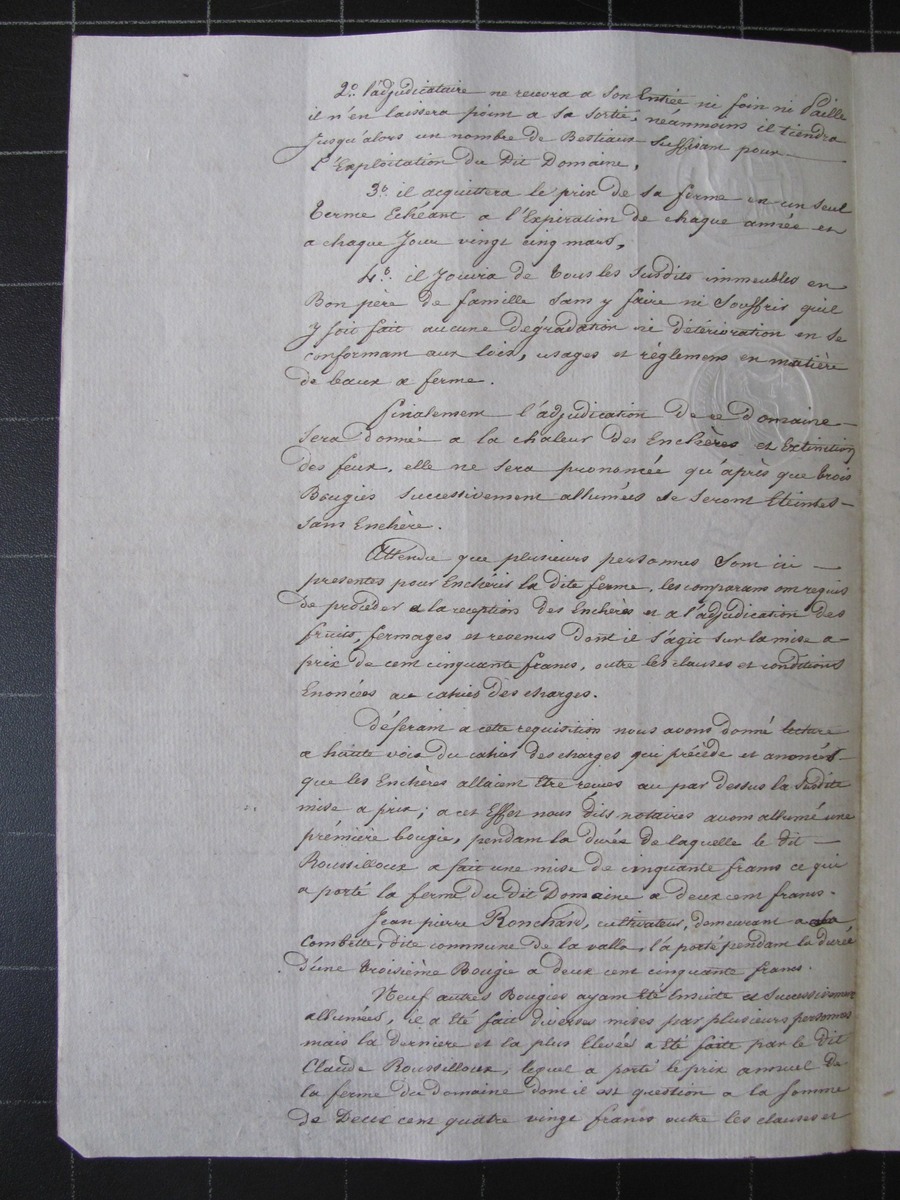 2.° l'adjudicataire ne recevra a son Entrée ni foin ni Paille
il n'en laissera point a sa sortie, néanmoins il tiendra
Jusqu'alors un nombre de Bestiaux Suffisant pour
l'Exploitation du Dit Domaine,
3.° il acquittera le prix de sa ferme en un seul
terme Echéant a l'Expiration de chaque année et
a chaque Jour vingt cinq mars,
4.° il Jouira de tous les Susdits immeubles en
Bon père de famille sans y faire ni Souffrir qu'il
y soit fait aucune dégradation ni détérioration en se
conformant aux lois, usages et règlemens en matière
de baux a ferme.
finalement l'adjudication de ce Domaine
Sera donnée a la chaleur des Enchères et Extinction
des feux. elle ne sera prononcée qu'après que trois
Bougies successivement allumées se seront Eteintes
sans Enchère.
Attendu que plusieurs personnes Sont ici
presentes pour Enchérir la dite ferme, les comparans ont requis
de procéder a la reception des Enchères et a l'adjudication des
fruits, fermages et revenus dont il s'agit sur la mise a
prix de cent cinquante francs, outre les clauses et conditions
Enoncées au cahier des charges.
Déferant a cette requisition nous avons donné lecture
a haute voix du cahier des charges qui précède et anoncés
que les Enchères allaient Etre recues au par dessus la Susdite
mise a prix; a cet Effet nous dits notaires avons allumé une
première bougie, pendant la durée de laquelle le dit
Roussilloux a fait une mise de cinquante francs ce qui
a porté la ferme du dit Domaine a deux cent francs.
Jean pierre Ronchard, cultivateur, demeurant a la
Combette, dite commune de la valla, l'a porté pendant la durée
d'une troisième Bougie a deux cent cinquante francs.
Neuf autres Bougies ayant Eté Ensuite et Successivement
allumées, il a Eté fait diverses mises par plusieurs personnes
mais la derniere et la plus Elevée a Eté faite par le dit
Claude Roussilloux, lequel a porté le prix annuel de
la ferme du domaine dont il est question a la somme
de Deux cent quatre vingt francs outre les clauses et